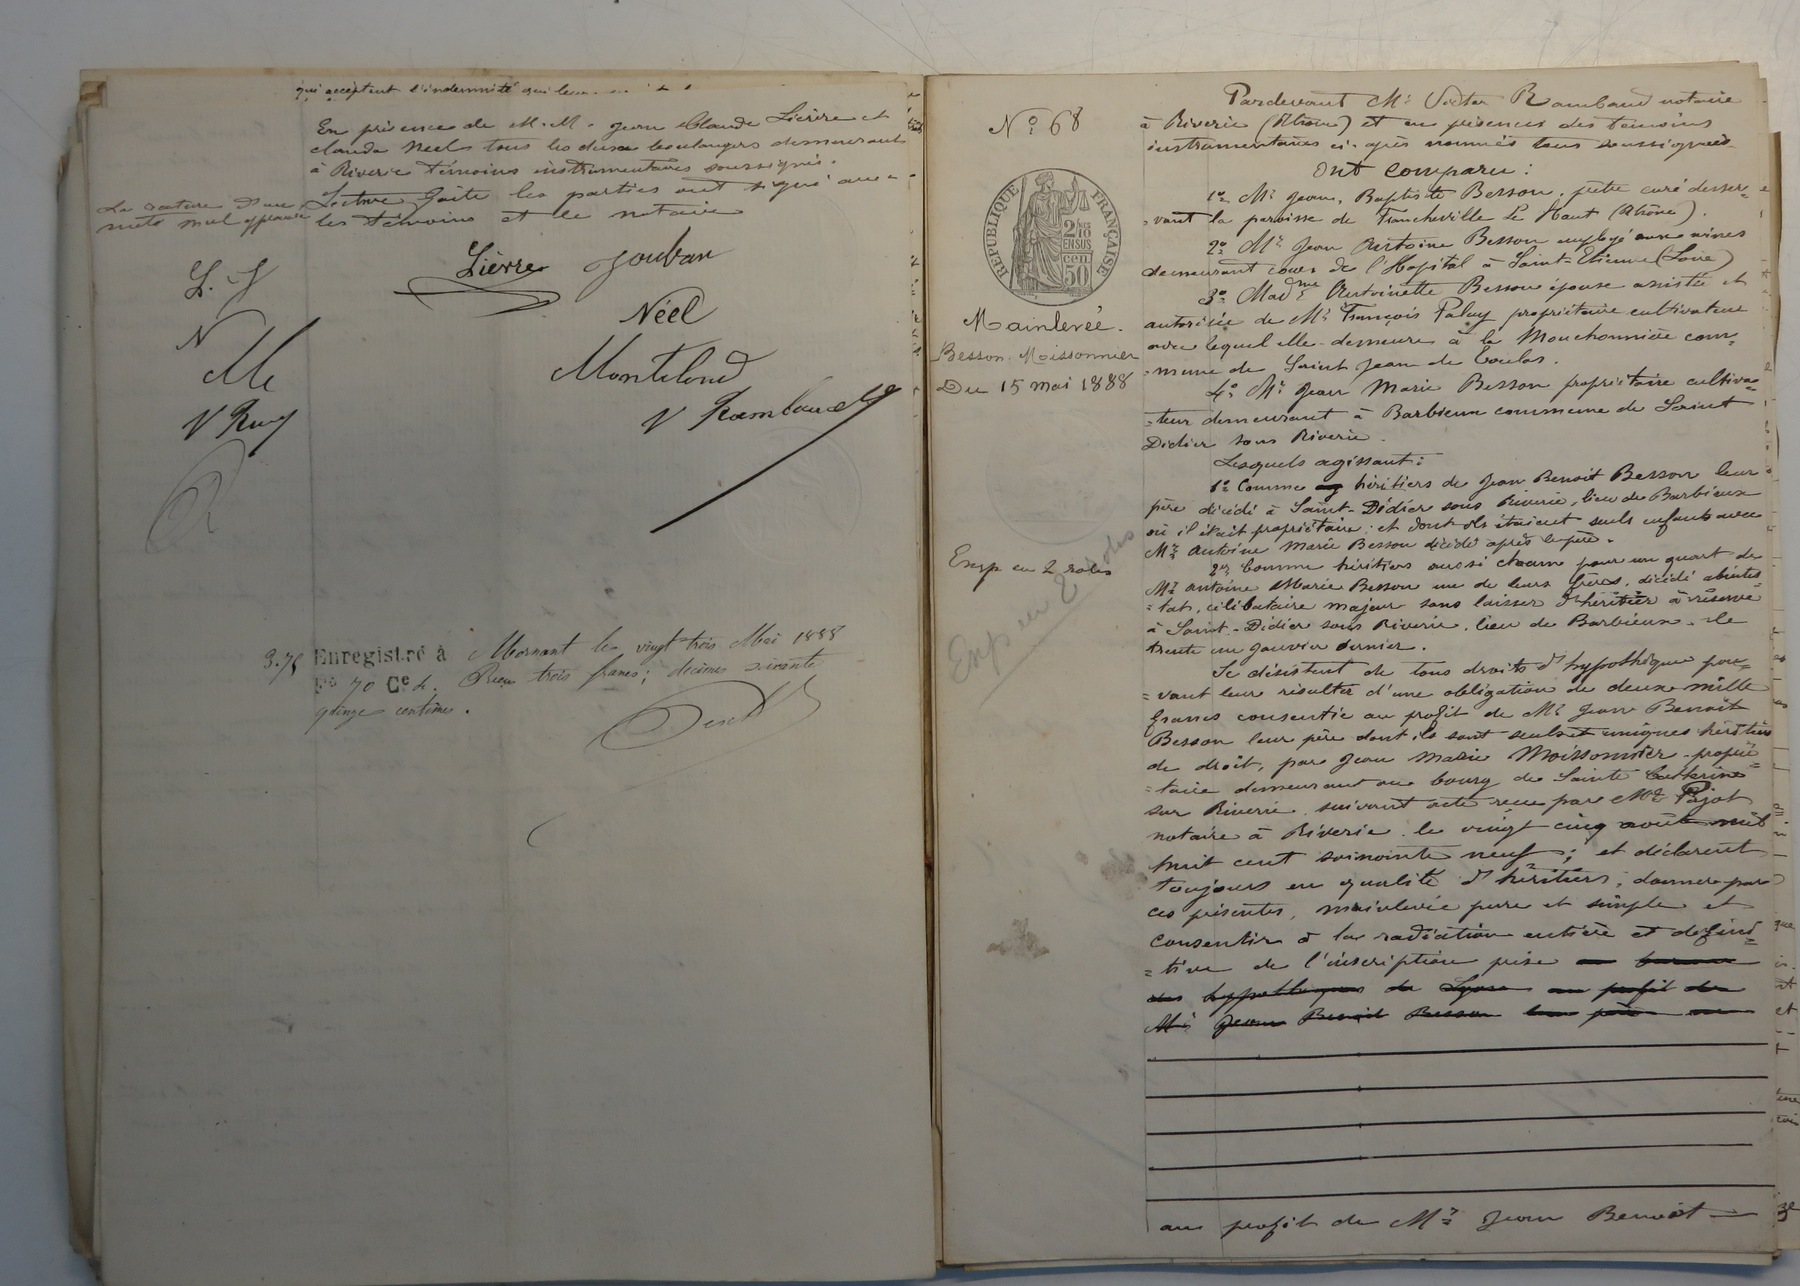 qui acceptent l'indemnité
En présence de M.M. Jean Claude Lièvre et
Claude Néel tous les deux boulangers demeurant
à Riverie témoins instrumentaires soussignés.
Lecture faite les parties ont signé avec
les témoins et le notaire
La rature d'un
mots nul approuvé
L. J
N
M
V Rmy
R
Lièvre Jouban
Néel
Monteloud
V Rambaud
3.75 Enregistré à Mornant le vingt trois Mai 1888
fo 70 Ce 4. Reçu trois francs; décimes soixante
quinze centimes.
No 68
REPUBLIQUE FRANÇAISE
2/10
EN SUS
cen
50
Mainlevée.
Besson-Moissonnier
Du 15 mai 1888
Exp en 2 roles
Exp en 2 roles
Pardevant Me Victor Rambaud notaire
à Riverie (Rhône) et en présence des témoins
instrumentaires ci-après nommés tous soussignés
Ont comparu :
1o Mr Jean, Baptiste Besson, prêtre curé desser-
-vant la paroisse de Francheville Le Haut (Rhône).
2o Mr Jean Antoine Besson employé aux mines
demeurant cours de l'Hopital à Saint-Etienne (Loire)
3o Madme Antoinette Besson épouse assistée et
autorisée de Mr François Paluy propriétaire cultivateur
avec lequel elle demeure à la Mouchonnière com-
-mune de Saint Jean de Toulas.
4o Mr Jean Marie Besson propriétaire cultiva-
-teur demeurant à Barbieux commune de Saint
Didier sous Riverie.
Lesquels agissant :
1o Comme héritiers de Jean Benoit Besson leur
père décédé à Saint-Didier sous Riverie, lieu de Barbieux
où il était propriétaire; et dont ils étaient seuls enfants avec
Mr Antoine Marie Besson décédé après le père.
2o Comme héritiers aussi chacun pour un quart de
Mr Antoine Marie Besson un de leurs frères, décédé abintes-
-tat, célibataire majeur sans laisser d'héritier à réserve
à Saint-Didier sous Riverie, lieu de Barbieux, le
trente un janvier dernier.
Se désistent de tous droits d'hypothèque pou-
-vant leur résulter d'une obligation de deux mille
francs consentie au profit de Mr Jean Benoit
Besson leur père dont ils sont seuls et uniques héritiers
de droit, par Jean Marie Moissonnier propri-
-taire demeurant au bourg de Sainte Catherine
sur Riverie, suivant acte reçu par Me Pajot
notaire à Riverie le vingt cinq août mil
huit cent soixante neuf; et déclarent
toujours en qualité d'héritiers, donner par
ces présentes, mainlevée pure et simple et
consentir à la radiation entière et défini-
-tive de l'inscription prise au bureau
des hypothèques de Lyon au profit de
Mr Jean Benoit Besson leur père
au profit de Mr Jean Benoit